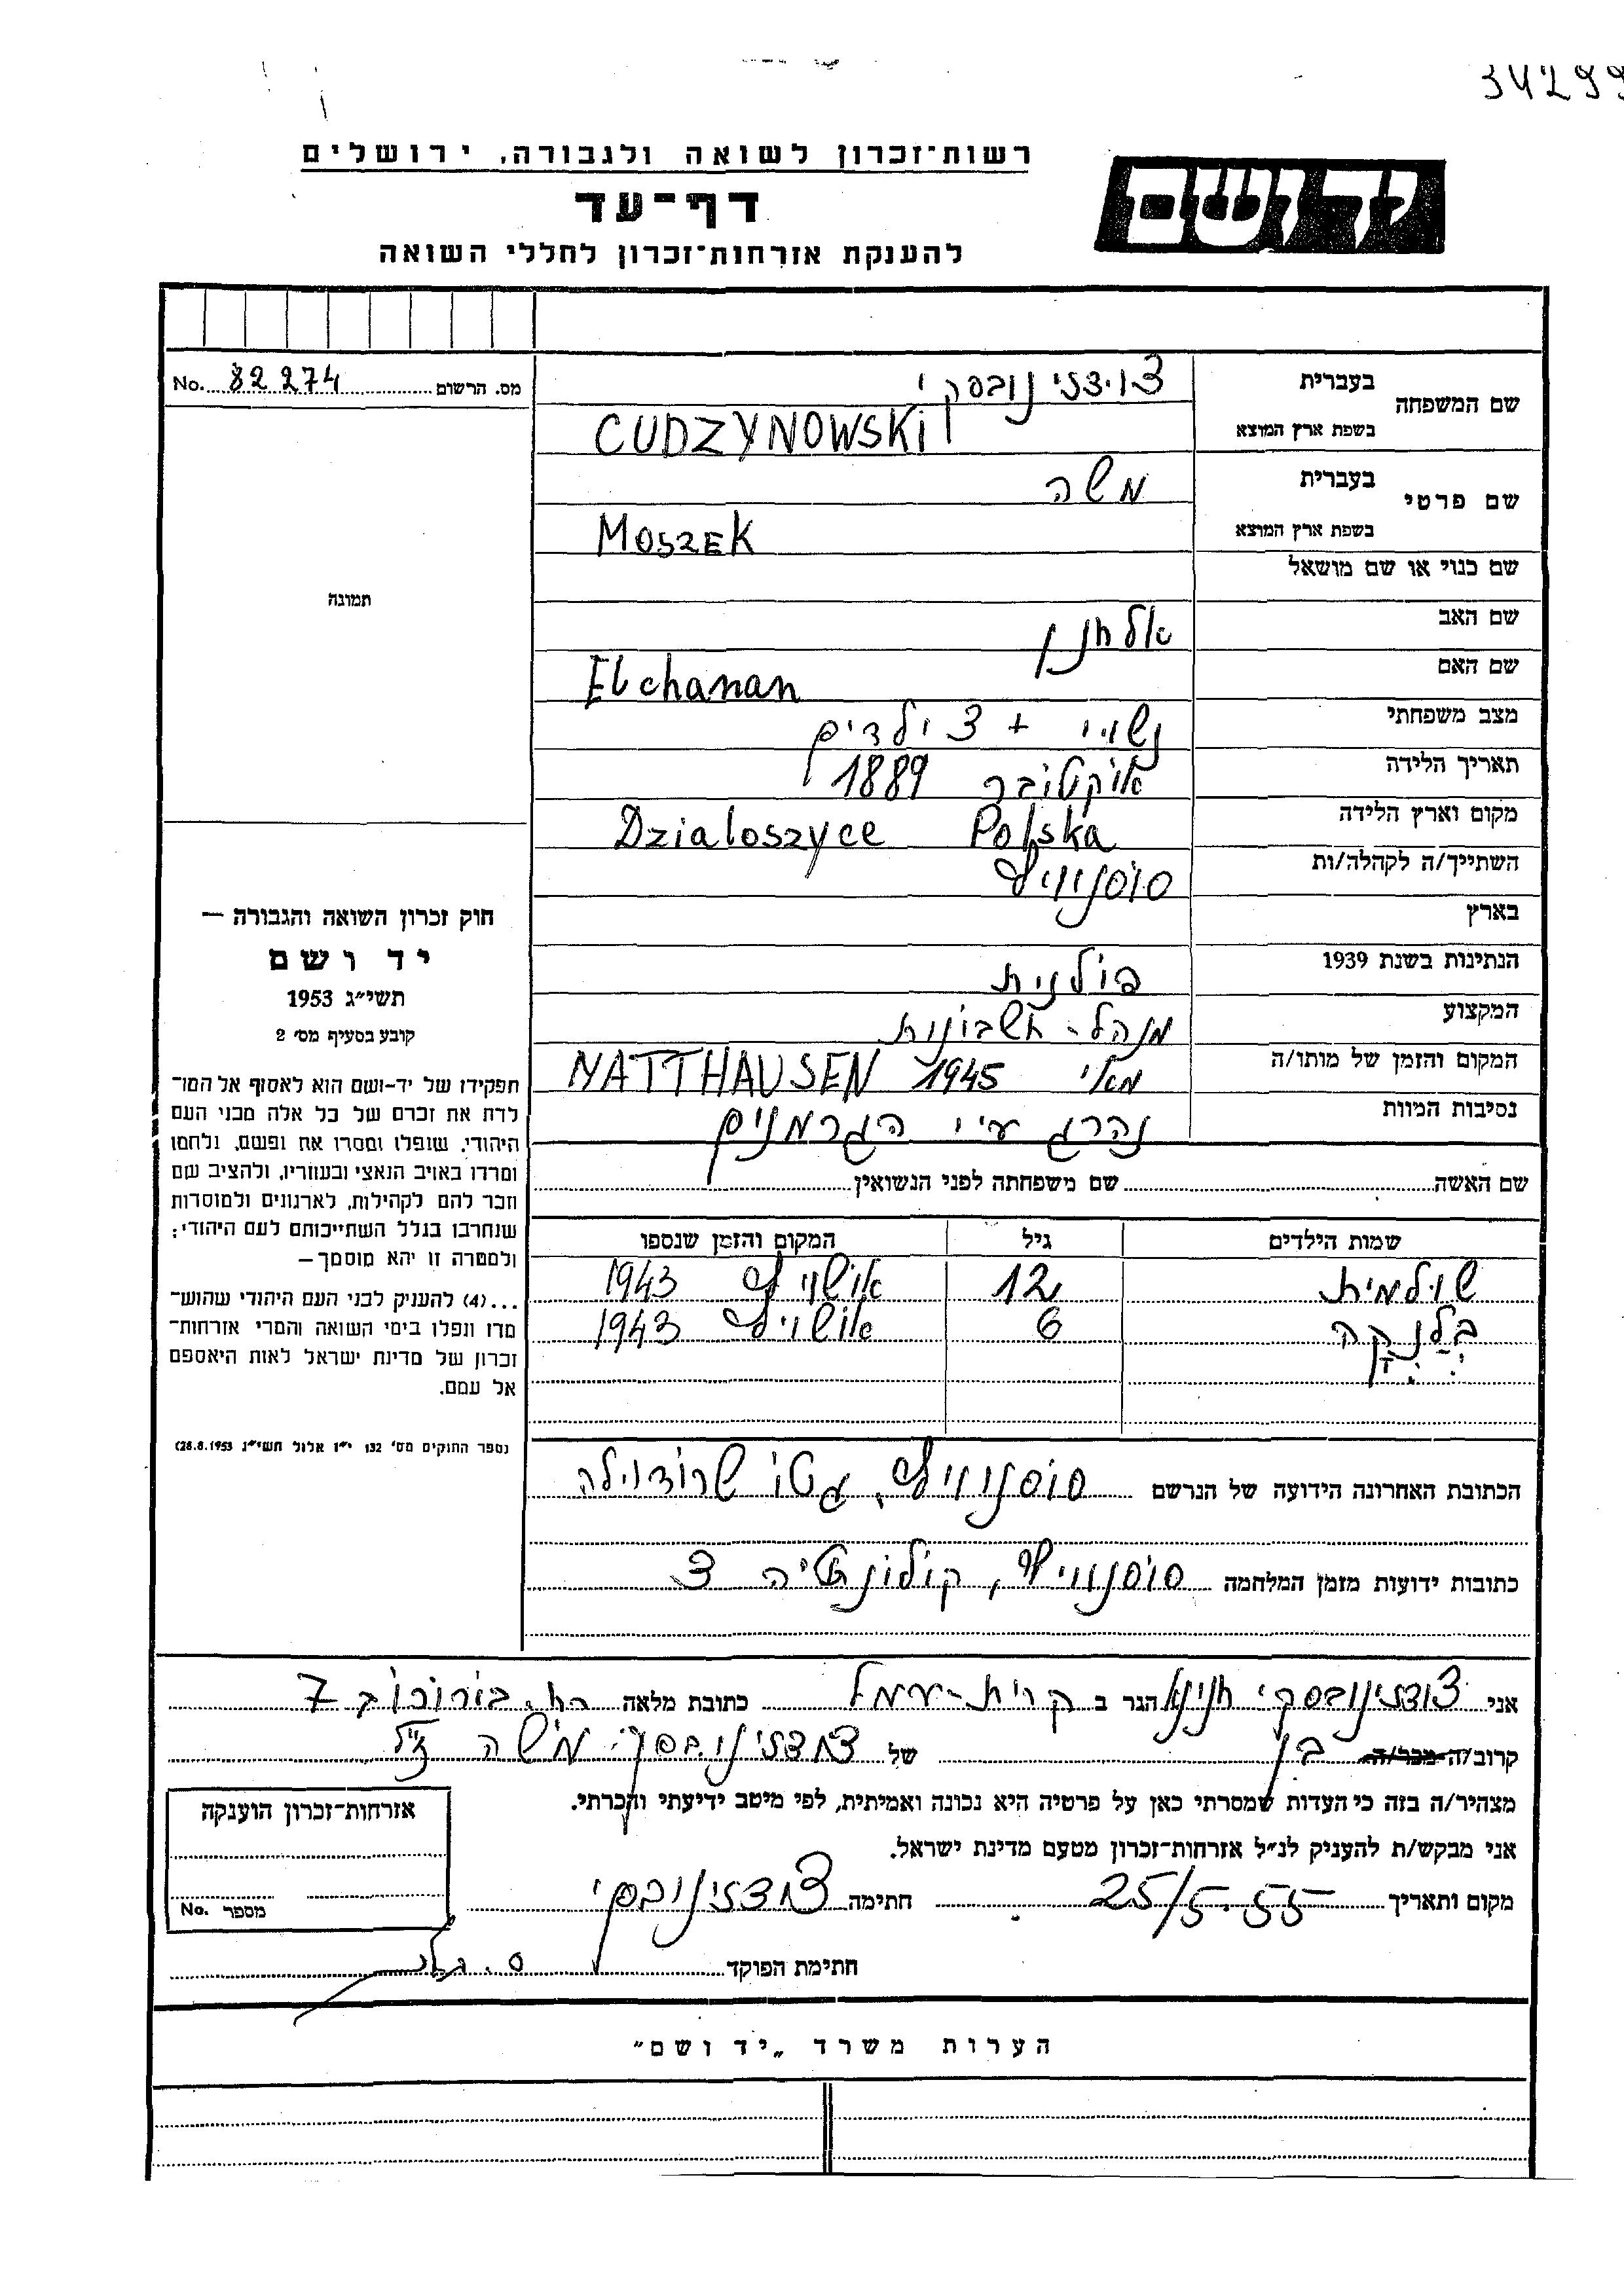 34299
רשות-זכרון לשואה ולגבורה, ירושלים
יד ושם
דף-עד
להענקת אזרחות-זכרון לחללי השואה
מס. הרשום 82274 No.
שם המשפחה
בעברית צוידזינובסקי
בשפת ארץ המוצא CUDZYNOWSKI
שם פרטי
בעברית משה
בשפת ארץ המוצא MOSZEK
שם כנוי או שם מושאל
שם האב אלחנן
שם האם Elchanan
מצב משפחתי נשוי + 3 ילדים
תאריך הלידה אוקטובר 1889
מקום וארץ הלידה Dzialoszyce Polska
השתייך/ה לקהלה/ות סוסנוויץ
בארץ
הנתינות בשנת 1939 פולנית
המקצוע מנהל-חשבונות
המקום והזמן של מותו/ה מאי 1945 MATTHAUSEN
נסיבות המוות נהרג ע״י הגרמנים
שם האשה שם משפחתה לפני הנשואין
תמונה
חוק זכרון השואה והגבורה —
יד ושם
תשי״ג 1953
קובע בסעיף מס׳ 2
תפקידו של יד-ושם הוא לאסוף אל המו־
לדת את זכרם של כל אלה מבני העם
היהודי, שנפלו ומסרו את נפשם, נלחמו
ומרדו באויב הנאצי ובעוזריו, ולהציב שם
וזכר להם לקהילות, לארגונים ולמוסדות
שנחרבו בגלל השתייכותם לעם היהודי;
ולמטרה זו יהא מוסמך—
...(4) להעניק לבני העם היהודי שהוש־
מדו ונפלו בימי השואה והמרי אזרחות־
זכרון של מדינת ישראל לאות היאספם
אל עמם.
(ספר החוקים מס׳ 132 י״ז אלול תשי״ג 28.8.1953)
שמות הילדים גיל המקום והזמן שנספו
שולמית 12 אושויץ 1943
בלנקה 6 אושויץ 1943
הכתובת האחרונה הידועה של הנרשם סוסנוויץ, גטו שרודולה
כתובות ידועות מזמן המלחמה סוסנוויץ, 3
אני צודזינובסקי חנינא הגר ב קרית-עמל כתובת מלאה רח. בורוכוב 7
קרוב/ה מכר/ה בן של צודזינובסקי משה ז״ל
מצהיר/ה בזה כי העדות שמסרתי כאן על פרטיה היא נכונה ואמיתית, לפי מיטב ידיעתי והכרתי.
אני מבקש/ת להעניק לנ״ל אזרחות-זכרון מטעם מדינת ישראל.
מקום ותאריך 25/5.55 חתימה צודזינובסקי
חתימת הפוקד
אזרחות-זכרון הוענקה
מספר No.
הערות משרד „יד ושם״